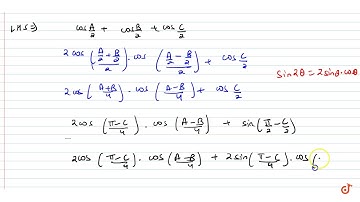 LHS ⇒) cos A/2 + cos B/2 + cos C/2
2cos ((A/2 + B/2)/2) . cos ((A/2 - B/2)/2) + cos C/2
sin2θ = 2sinθ.cosθ
2cos ((A+B)/4) . cos ((A-B)/4) + cos C/2
2cos ((π-C)/4) . cos ((A-B)/4) + sin (π/2 - C/2)
2cos ((π-C)/4) . cos ((A-B)/4) + 2sin ((π-C)/4) . cos (